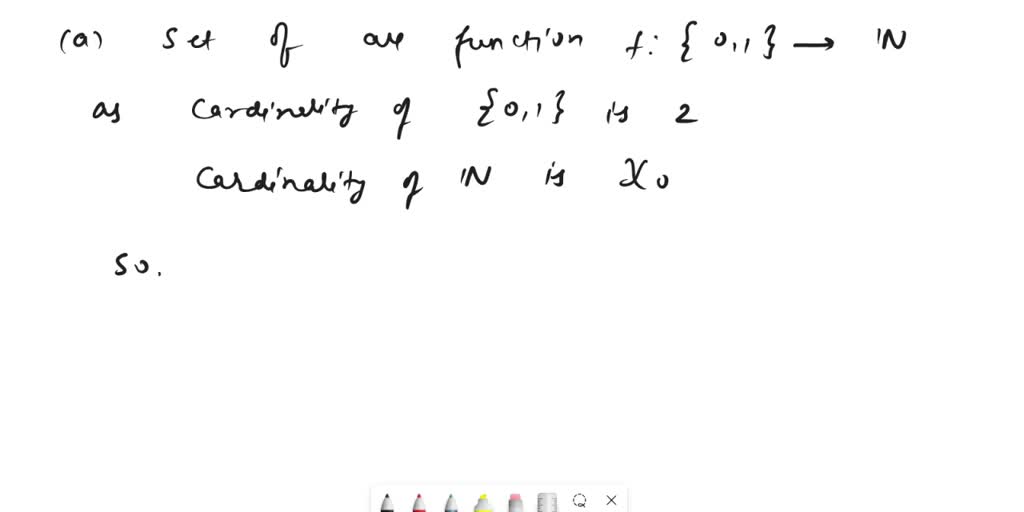 (a) Set of all function f: {0,1} → ℕ
as Cardinality of {0,1} is 2
Cardinality of ℕ is ℵ0
So.